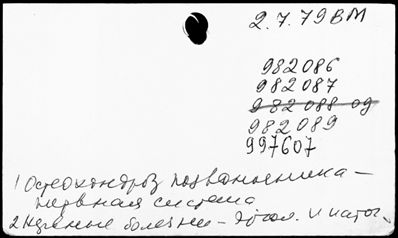 2.7.79ВМ
982086
982087
982088 од
982089
997607
1 Остеохондроз позвоночника –
нервная система
2 Нервные болезни – этиол. и патог.